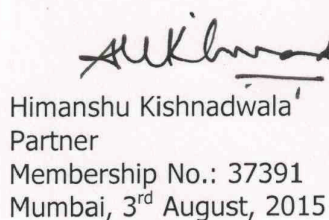 Himanshu Kishnadwala
Partner
Membership No.: 37391
Mumbai, 3rd August, 2015